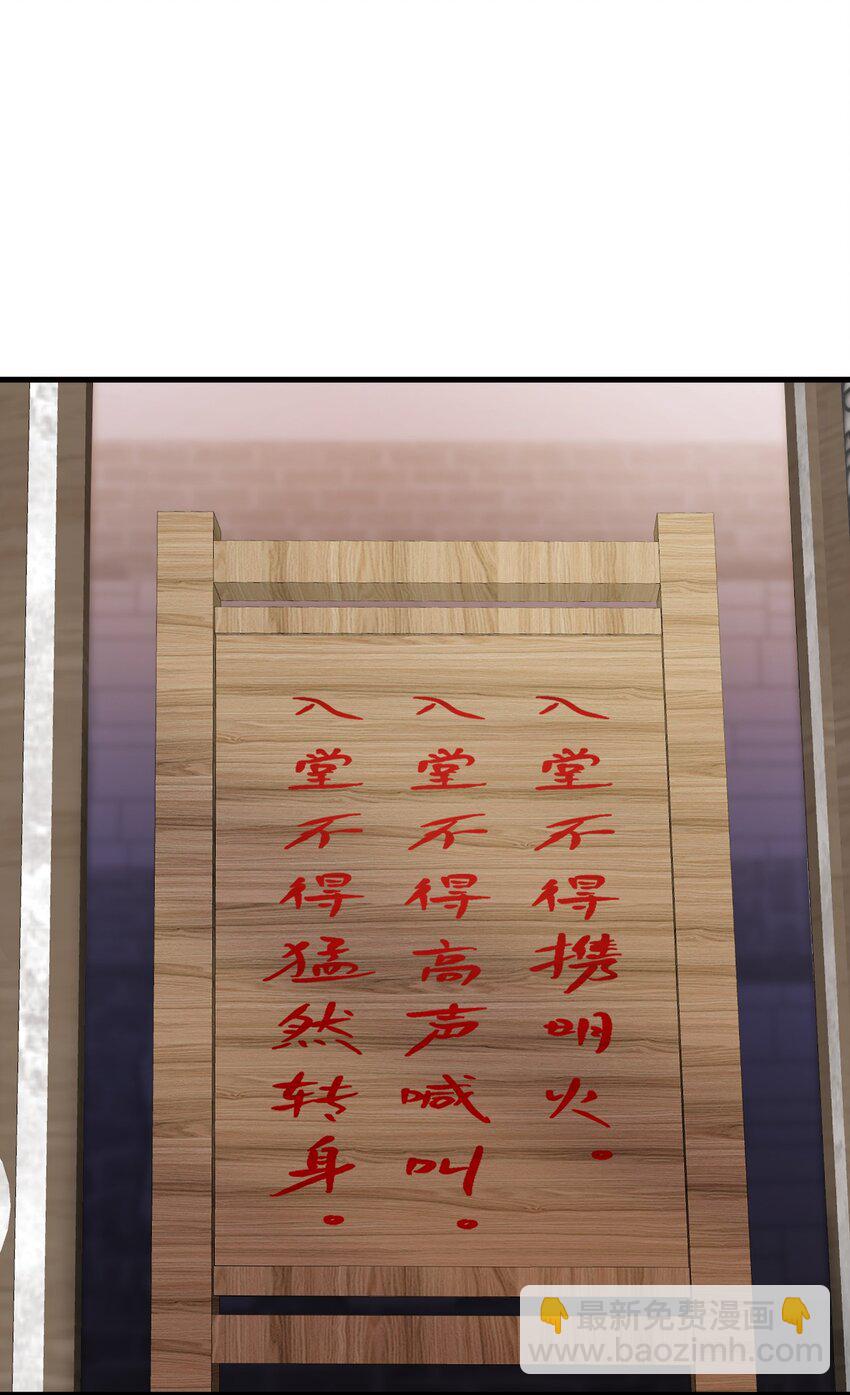 入堂不得携明火。
入堂不得高声喊叫。
入堂不得猛然转身。
👇最新免费漫画👇
www.baozimh.com